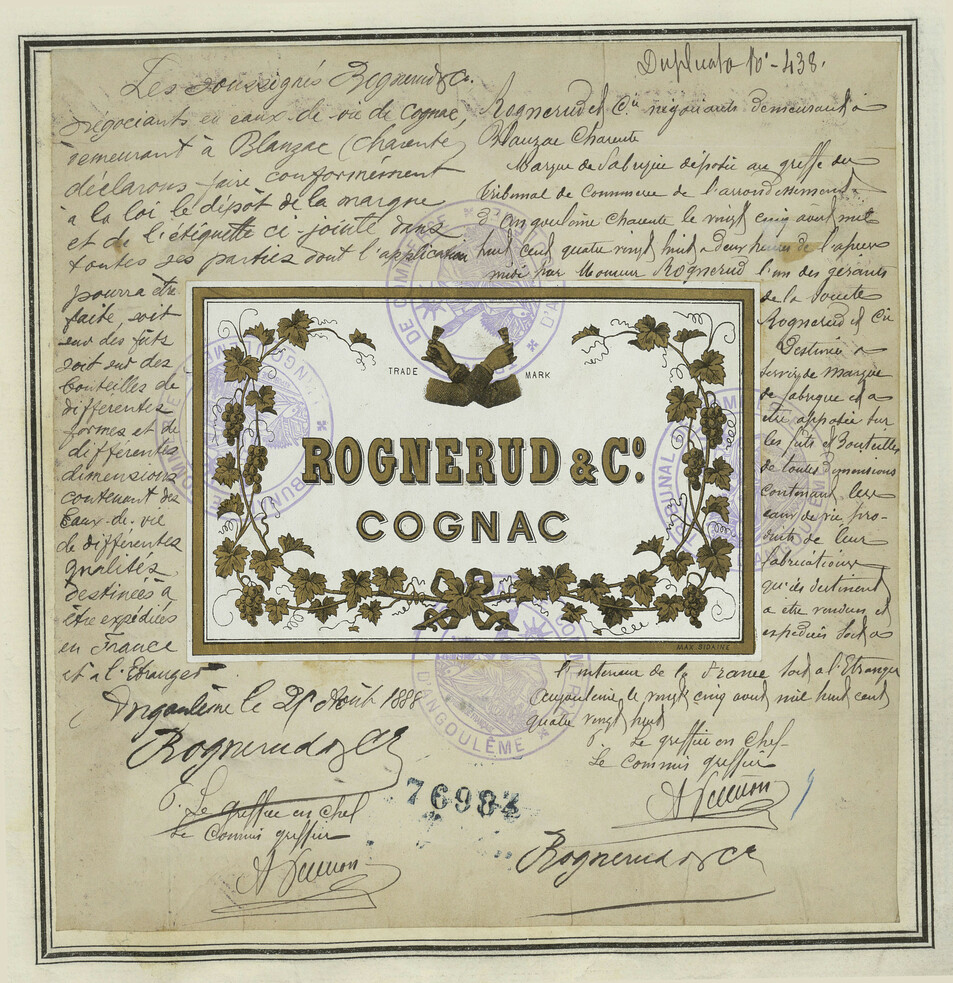 Duplicata N° - 438.
Les soussignés Rognerud & Cie.
négociants en eaux-de-vie de Cognac,
demeurant à Blanzac (charente)
déclarons faire conformément
à la loi le dépôt de la marque
et de l'étiquette ci-jointe dans
toutes ses parties dont l'application
pourra être
faite soit
sur des fûts
soit sur des
bouteilles de
différentes
formes et de
différentes
dimensions
contenant des
Eaux-de-vie
de différentes
qualités
destinées à
être expédiées
en France
et à l'Etranger
Angoulème le 25 Août 1888
Rognerud & Cie
P. Le greffier en chef
Le Commis greffier
Rognerud et Cie négociants demeurant à
Blanzac Charente
Marque de fabrique déposée au greffe du
Tribunal de Commerce de l'arrondissement
d'Angoulème Charente le vingt cinq août mil
huit cent quatre vingt huit à deux heures de l'après
midi par Monsieur Rognerud l'un des gérants
de la Société
Rognerud et Cie
Destinée à
servir de marque
de fabrique et à
etre apposée sur
les fûts et Bouteilles
de toutes dimensions
contenant les
eaux de vie pro-
duits de leur
fabrication
qu'ils destinent
a etre vendus et
expediés soit à
l'interieur de la France soit a l'Etranger
Angoulème le vingt cinq aout mil huit cent
quatre vingt huit
P. Le greffier en chef
Le Commis greffier
Rognerud & Cie
TRADE MARK
ROGNERUD & Co.
COGNAC
MAX. SIDAINE
76982
DE COMMERCE
TRIBUNAL
D'ANGOULÊME